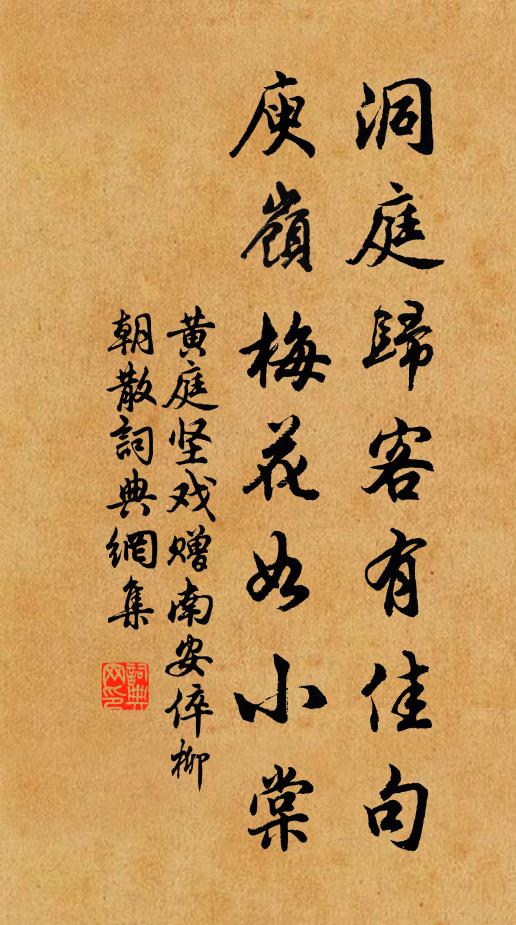 洞庭歸客有佳句
庾嶺梅花如小棠
黄庭坚戏赠南安倅柳
朝散詞典網集
詞典网印